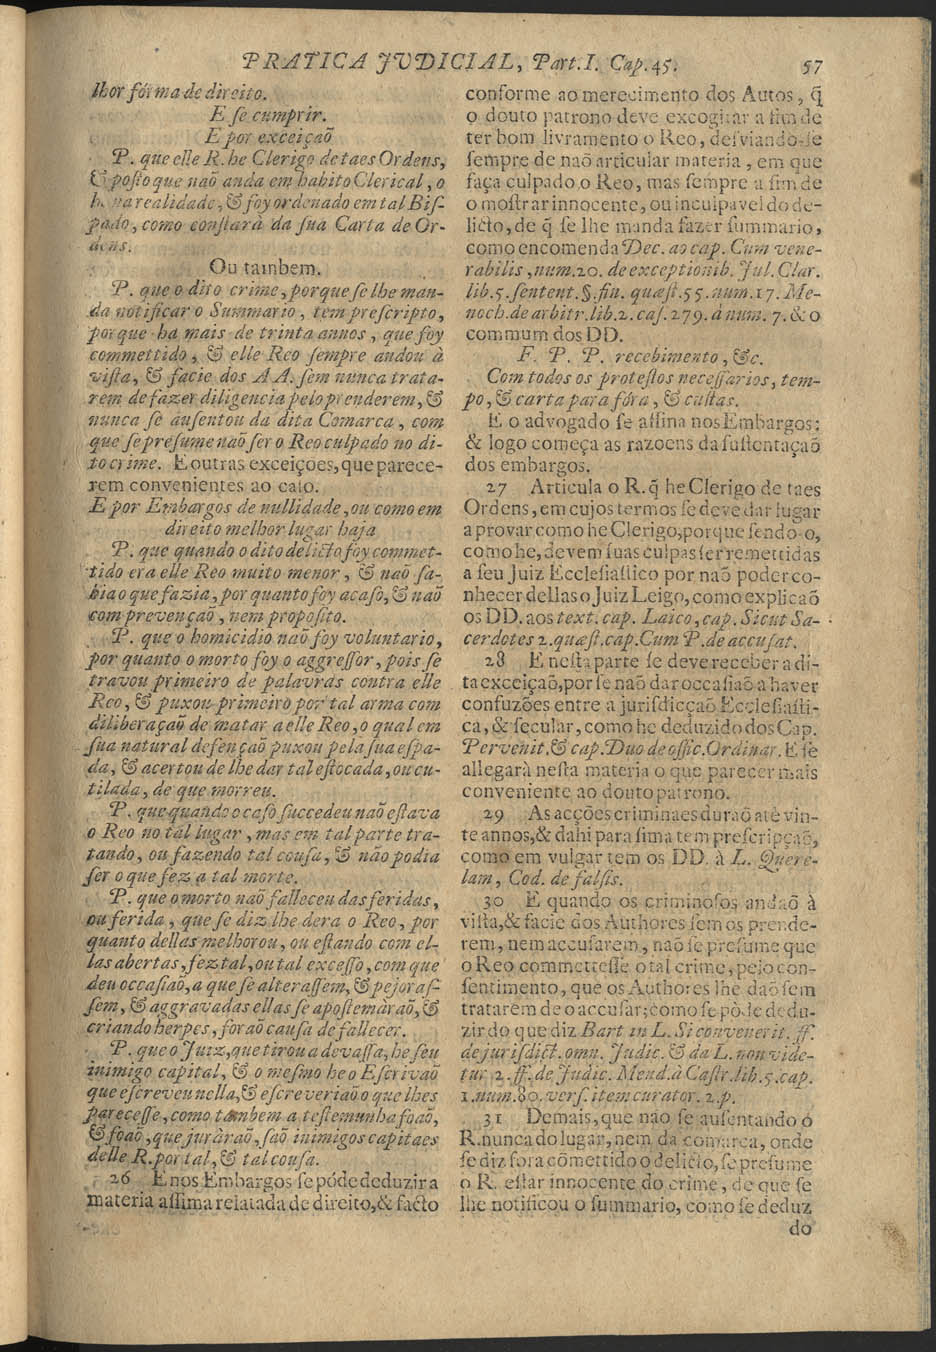 PRATICA JVDICIAL, Part.I. Cap.45. 57
lhor fórma de direito.
E ſe cumprir.
E por exceiçaõ
P. que elle R. he Clerigo de taes Ordens,
& poſto que naõ anda em habito Clerical, o
he na realidade, & foy ordenado em tal Biſ-
pado, como conſtarà da ſua Carta de Or-
dens.
Ou tambem.
P. que o dito crime, porque ſe lhe man-
da notificar o Summario, tem preſcripto,
porque ha mais de trinta annos, que foy
commettido, & elle Reo ſempre andou à
viſta, & facie dos AA. ſem nunca trata-
rem de fazer diligencia pelo prenderem, &
nunca ſe auſentou da dita Comarca, com
que ſe preſume naõ ſer o Reo culpado no di-
to crime. E outras exceições, que parece-
rem convenientes ao caſo.
E por Embargos de nullidade, ou como em
direito melhor lugar haja
P. que quando o dito delicto foy commet-
tido era elle Reo muito menor, & naõ ſa-
bia o que fazia, por quanto foy acaſo, & naõ
com prevençaõ, nem propoſito.
P. que o homicidio naõ foy voluntario,
por quanto o morto foy o aggreſſor, pois ſe
travou primeiro de palavras contra elle
Reo, & puxou primeiro por tal arma com
diliberaçaõ de matar a elle Reo, o qual em
ſua natural defençaõ puxou pela ſua eſpa-
da, & acertou de lhe dar tal eſtocada, ou cu-
tilada, de que morreu.
P. que quando o caſo ſuccedeu naõ eſtava
o Reo no tal lugar, mas em tal parte tra-
tando, ou fazendo tal couſa, & não podia
ſer o que fez a tal morte.
P. que o morto naõ falleceu das feridas,
ou ferida, que ſe diz lhe dera o Reo, por
quanto dellas melhorou, ou eſtando com el-
las abertas, fez tal, ou tal exceſſo, com que
deu occaſiaõ, a que ſe alteraſſem, & pejoraſ-
ſem, & aggravadas ellas ſe apoſtemàraõ, &
criando herpes, foraõ cauſa de fallecer.
P. que o Juiz, que tirou a devaſſa, he ſeu
inimigo capital, & o meſmo he o Eſcrivaõ
que eſcreveu nella, & eſcreveriaõ o que lhes
pareceſſe, como tambem a teſtemunha foaõ,
& foaõ, que juràraõ, ſaõ inimigos capitaes
delle R. por tal, & tal couſa.
26 E nos Embargos ſe póde deduzir a
materia aſſima relatada de direito, & facto
conforme ao merecimento dos Autos, q̃
o douto patrono deve excogitar a fim de
ter bom livramento o Reo, deſviando-ſe
ſempre de naõ articular materia, em que
faça culpado o Reo, mas ſempre a fim de
o moſtrar innocente, ou inculpavel do de-
licto, de q̃ ſe lhe manda fazer ſummario,
como encomenda Dec. ao cap. Cum vene-
rabilis, num.20. de exceptionib. Jul. Clar.
lib.5. ſentent. §. fin. quæſt.55. num.17. Me-
noch. de arbitr. lib.2. caſ. 279. à num. 7. & o
commum dos DD.
F. P. P. recebimento, &c.
Com todos os proteſtos neceſſarios, tem-
po, & carta para fóra, & cuſtas.
E o advogado ſe aſſina nos Embargos:
& logo começa as razoens da ſuſtentaçaõ
dos embargos.
27 Articula o R. q̃ he Clerigo de taes
Ordens, em cujos termos ſe deve dar lugar
a provar como he Clerigo, porque ſendo-o,
como he, devem ſuas culpas ſer remettidas
a ſeu Juiz Eccleſiaſtico por naõ poder co-
nhecer dellas o Juiz Leigo, como explicaõ
os DD. aos text. cap. Laico, cap. Sicut Sa-
cerdotes 2. quæſt. cap. Cum P. de accuſat.
28 E neſta parte ſe deve receber a di-
ta exceiçaõ, por ſe naõ dar occaſiaõ a haver
confuzões entre a juriſdicçaõ Eccleſiaſti-
ca, & ſecular, como he deduzido dos Cap.
Pervenit, & cap. Duo de offic. Ordinar. E ſe
allegarà neſta materia o que parecer mais
conveniente ao douto patrono.
29 As acções criminaes duraõ até vin-
te annos, & dahi para ſima tem preſcripçaõ,
como em vulgar tem os DD. à L. Quere-
lam, Cod. de falſis.
30 E quando os criminoſos andaõ à
viſta, & facie dos Authores ſem os prende-
rem, nem accuſarem, naõ ſe preſume que
o Reo commetteſſe o tal crime, pelo con-
ſentimento, que os Authores lhe daõ ſem
tratarem de o accuſar; como ſe póde dedu-
zir do que diz Bart. in L. Si convenerit. ff.
de juriſdict. omn. Judic. & da L. non vide-
tur 2. ff. de Judic. Mend. à Caſtr. lib.5. cap.
1. num.80. verſ. item curator. 2.p.
31 Demais, que naõ ſe auſentando o
R. nunca do lugar, nem da comarca, onde
ſe diz fora cõmettido o delicto, ſe preſume
o R. eſtar innocente do crime, de que ſe
lhe notificou o ſummario, como ſe deduz
do